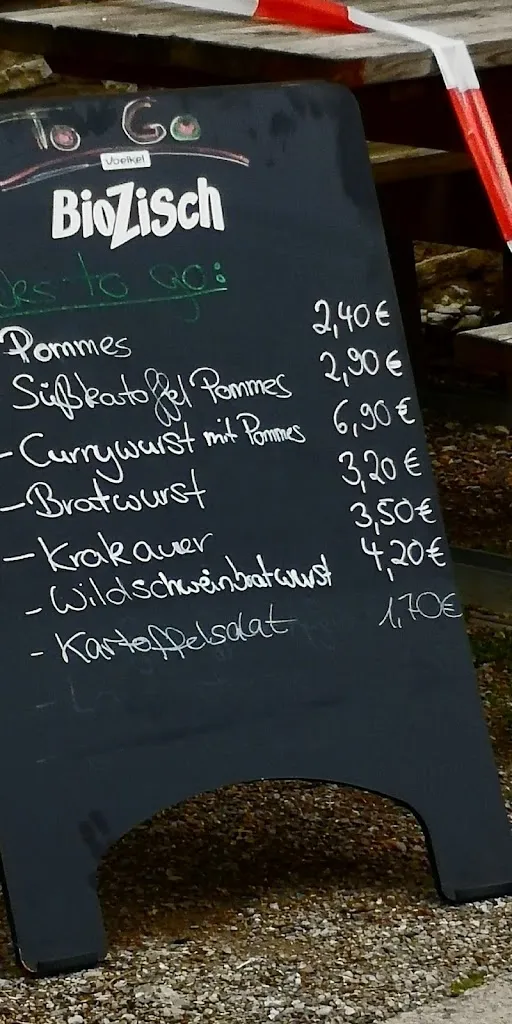 To Go
Voelkel
BioZisch
to go:
Pommes 2,40€
Süßkatoffel Pommes 2,90€
- Currywurst mit Pommes 6,90€
- Bratwurst 3,20€
- Krakauer 3,50€
- Wildschweinbratwurst 4,20€
- Kartoffelsalat 1,70€